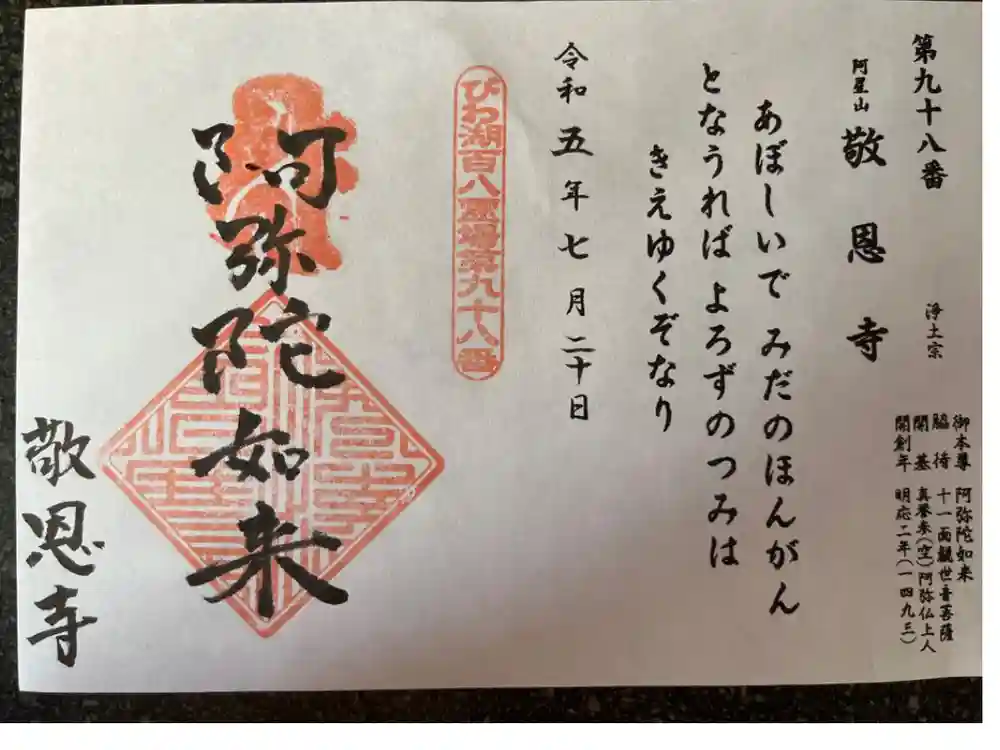 第九十八番
阿星山 敬恩寺
浄土宗
御本尊 阿弥陀如来
脇待 十一面観世音菩薩
開基 真誉来(空)阿弥仏上人
開創年 明応二年(一四九三)
あぼしいで みだのほんがん
となうれば よろずのつみは
きえゆくぞなり
令和五年七月二十日
びわ湖百八霊場第九十八番
阿弥陀如来
敬恩寺